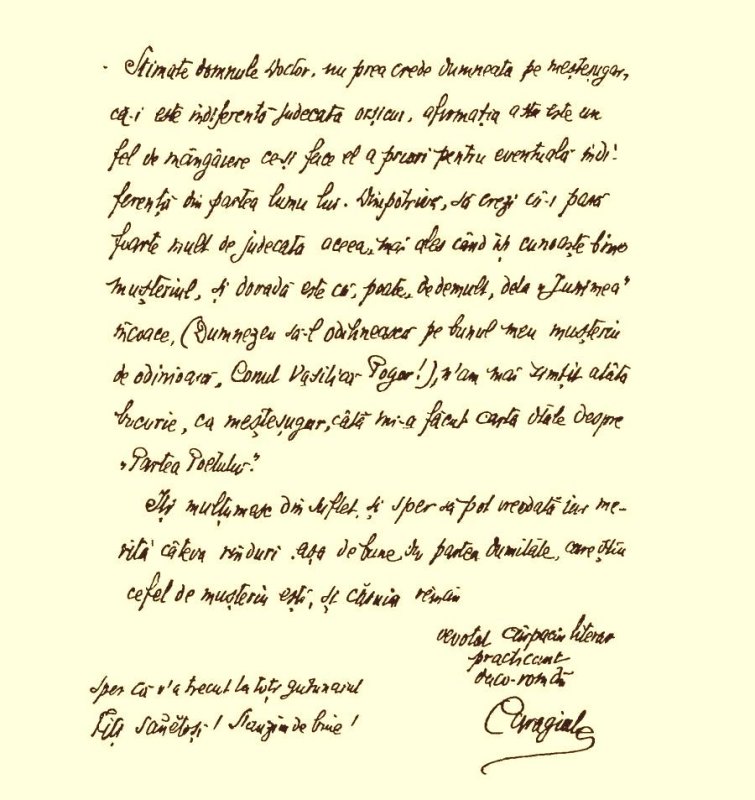 Stimate domnule Doctor, nu prea crede dumneata pe meșteșugar,
că-i este indiferentă judecata orșicui, afirmația asta este un
fel de mângâiere ce-și face el a priori pentru eventuala indi-
ferență din partea lumii lui. Dimpotrivă, să crezi că-i pasă
foarte mult de judecata aceea, mai ales când își cunoaște bine
mușteriul, și dovadă este că, poate, dedemult, dela „Junimea”
încoace, (Dumnezeu să-l odihnească pe bunul meu mușteriu
de odinioară, Conul Vasilică Pogor!), n'am mai simțit atâta
bucurie, ca meșteșugar, câtă mi-a făcut carta d-tale despre
„Partea Poetului”.
Iți mulțumesc din suflet, și sper să pot vreodată iar me-
rita câteva rînduri așa de bune din partea dumitale, care știu
cefel de mușteriu ești, și căruia rămân
devotat cârpaciu literar
practicant
daco-român
Caragiale
Sper că v'a trecut la toți guturaiul
Fiți sănătoși! Să auzim de bine!